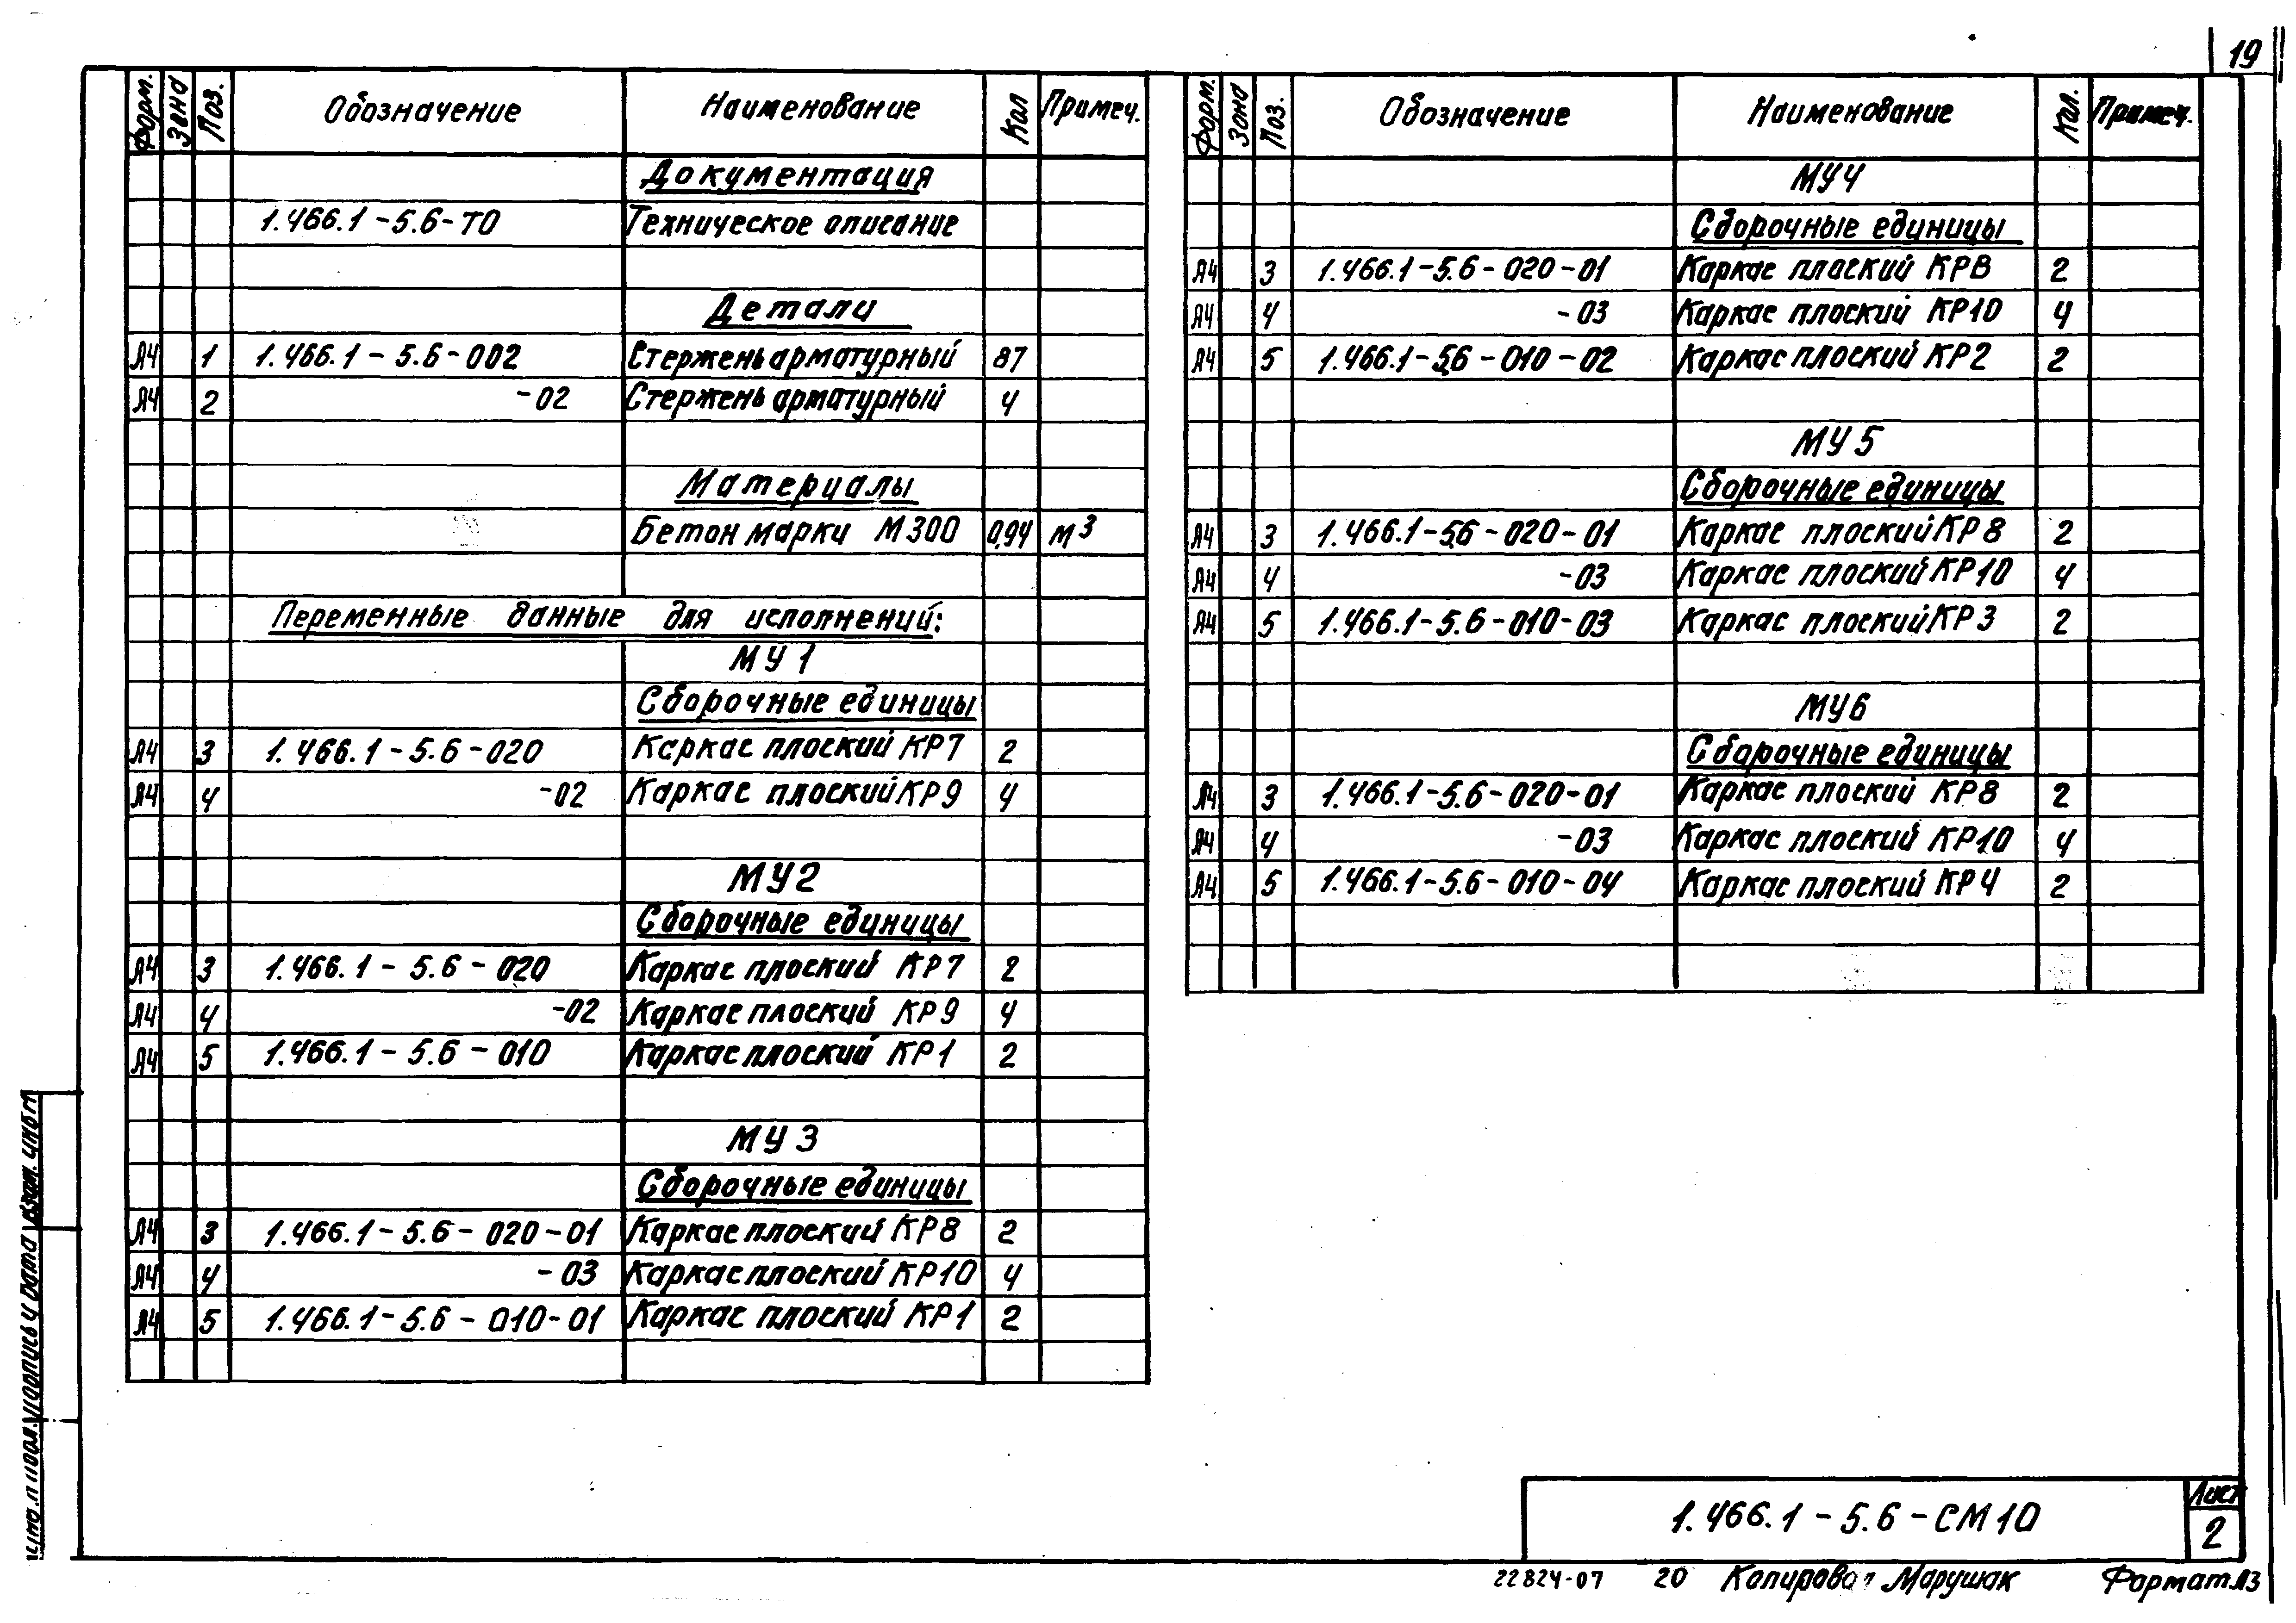 19
Форм. Зона Поз. Обозначение Наименование Кол Примеч.
Документация
1.466.1-5.6-ТО Техническое описание
Детали
А4 1 1.466.1-5.6-002 Стержень арматурный 87
А4 2 -02 Стержень арматурный 4
Материалы
Бетон марки М300 0,94 м³
Переменные данные для исполнений:
МУ1
Сборочные единицы
А4 3 1.466.1-5.6-020 Каркас плоский КР7 2
А4 4 -02 Каркас плоский КР9 4
МУ2
Сборочные единицы
А4 3 1.466.1-5.6-020 Каркас плоский КР7 2
А4 4 -02 Каркас плоский КР9 4
А4 5 1.466.1-5.6-010 Каркас плоский КР1 2
МУ3
Сборочные единицы
А4 3 1.466.1-5.6-020-01 Каркас плоский КР8 2
А4 4 -03 Каркас плоский КР10 4
А4 5 1.466.1-5.6-010-01 Каркас плоский КР1 2
Форм. Зона Поз. Обозначение Наименование Кол. Примеч.
МУ4
Сборочные единицы
А4 3 1.466.1-5.6-020-01 Каркас плоский КР8 2
А4 4 -03 Каркас плоский КР10 4
А4 5 1.466.1-5.6-010-02 Каркас плоский КР2 2
МУ5
Сборочные единицы
А4 3 1.466.1-5.6-020-01 Каркас плоский КР8 2
А4 4 -03 Каркас плоский КР10 4
А4 5 1.466.1-5.6-010-03 Каркас плоский КР3 2
МУ6
Сборочные единицы
А4 3 1.466.1-5.6-020-01 Каркас плоский КР8 2
А4 4 -03 Каркас плоский КР10 4
А4 5 1.466.1-5.6-010-04 Каркас плоский КР4 2
Подпись и дата Взам. инв
1.466.1-5.6-СМ10
Лист
2
22824-07 20 Копировал Марушак Формат А3